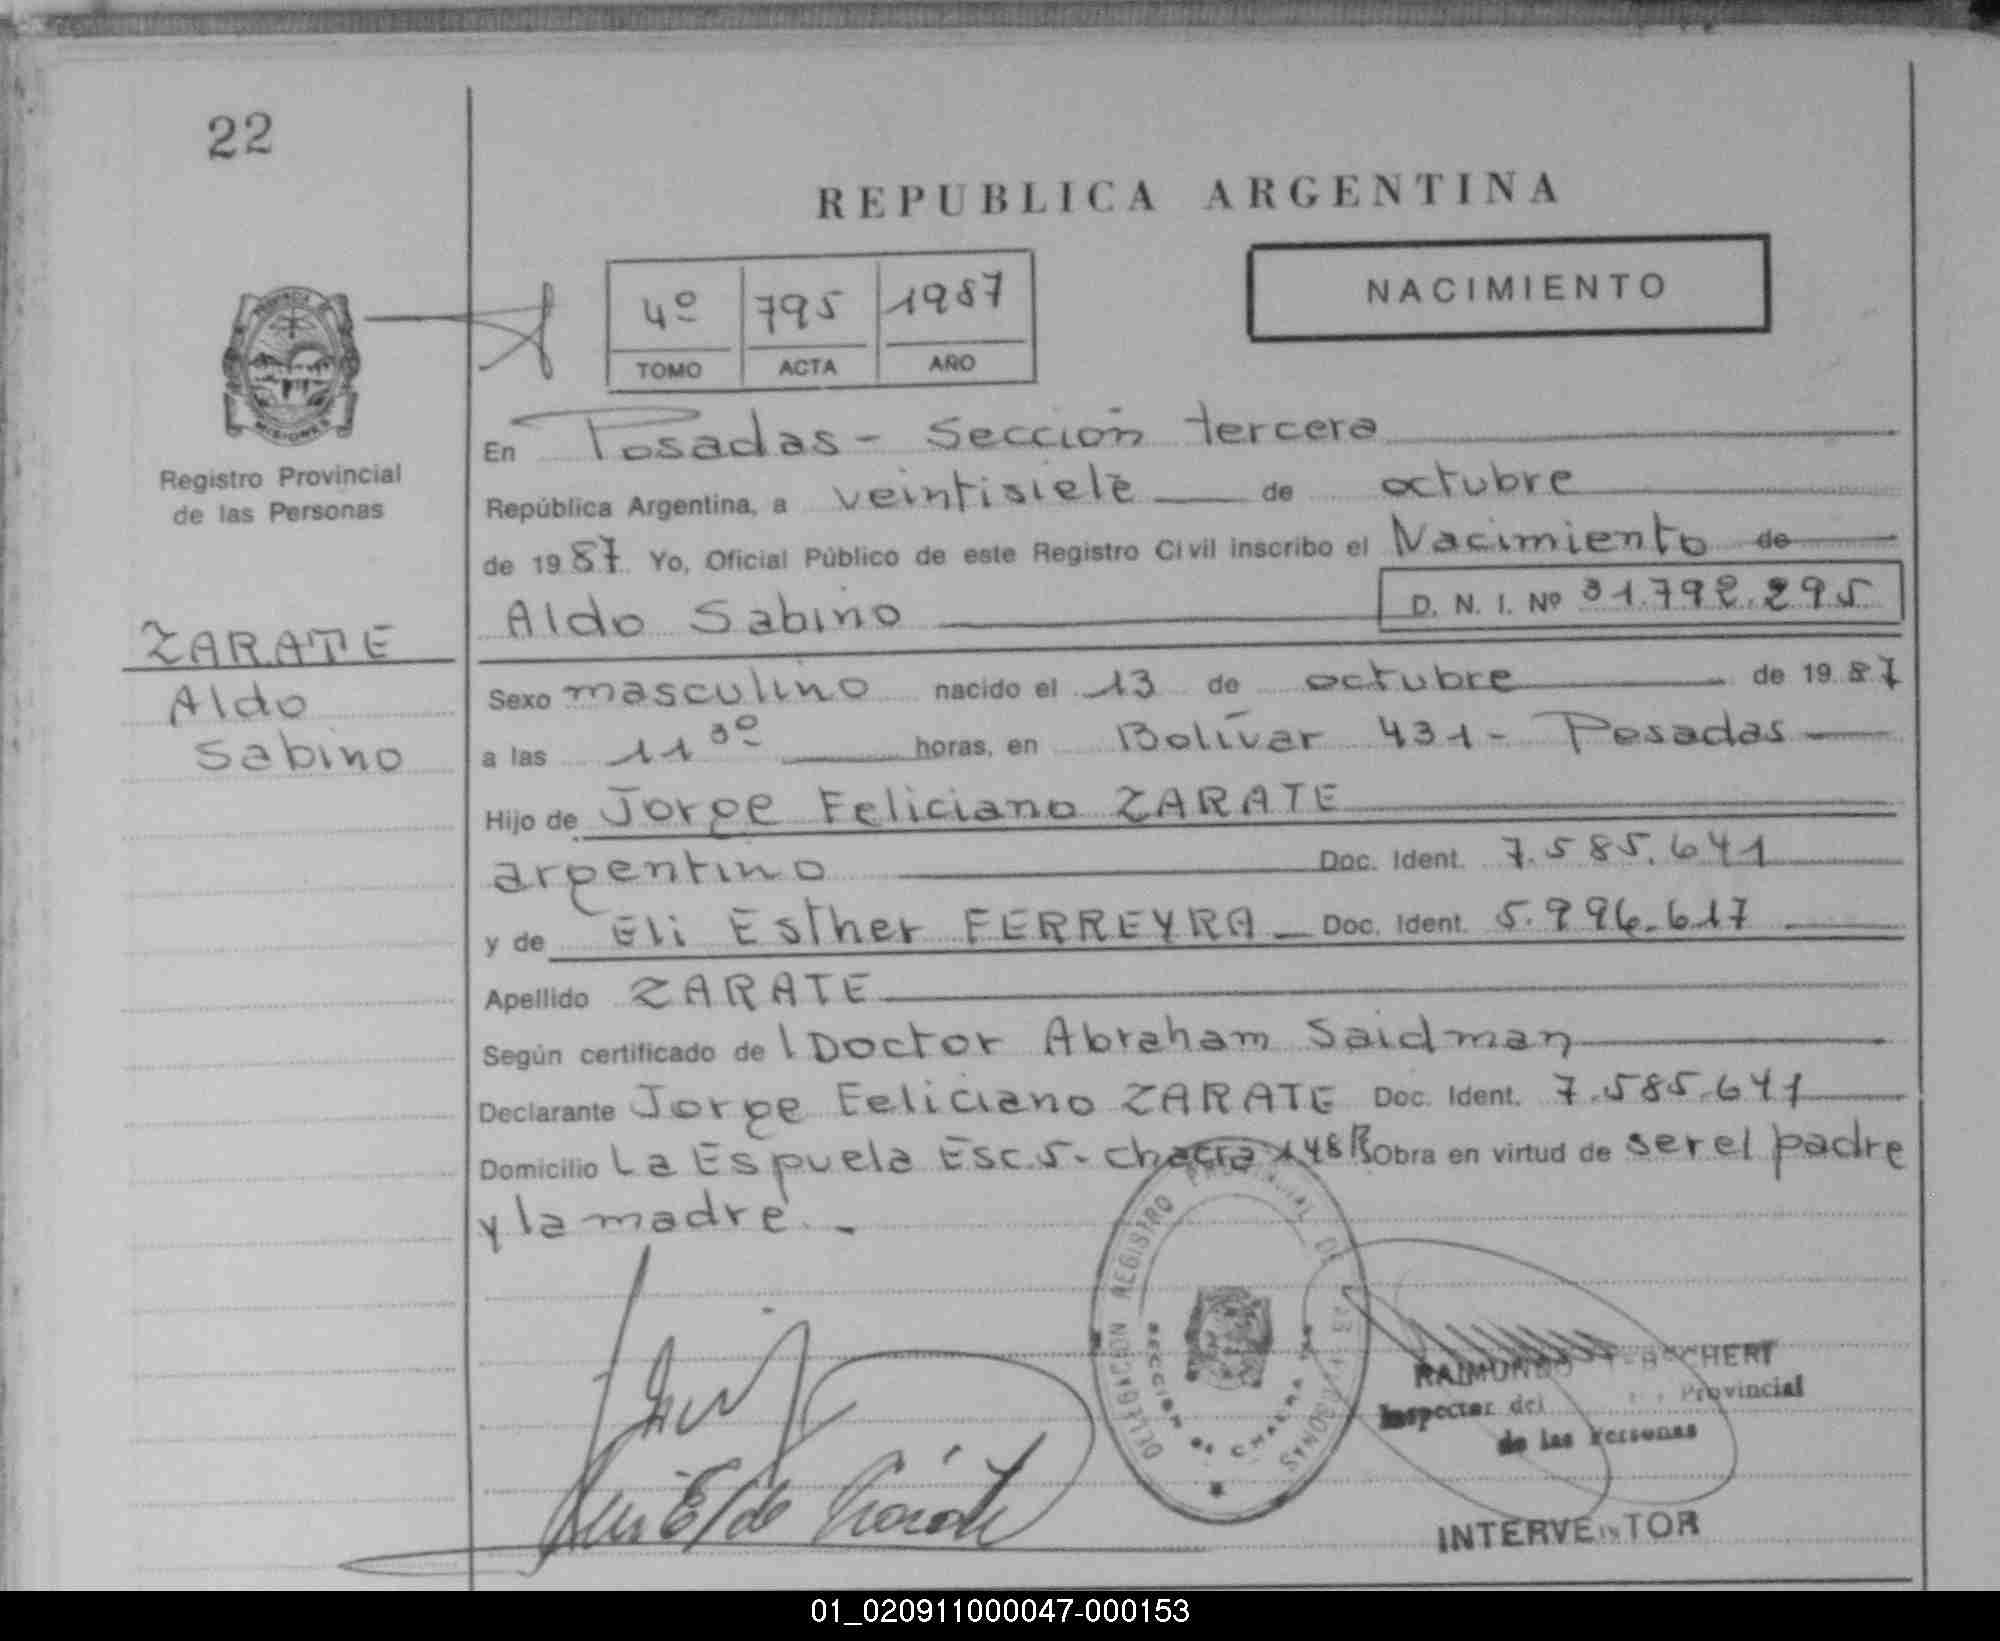 22
REPUBLICA ARGENTINA
NACIMIENTO
4º 795 1987
TOMO ACTA AÑO
MISIONES
Registro Provincial
de las Personas
ZARATE
Aldo
Sabino
En Posadas - Sección tercera
República Argentina, a veintisiete de octubre
de 1987 Yo, Oficial Público de este Registro Civil inscribo el Nacimiento de
Aldo Sabino D. N. I. Nº 31.792.295
Sexo masculino nacido el 13 de octubre de 1987
a las 11 30 horas, en Bolívar 431 - Posadas
Hijo de Jorge Feliciano ZARATE
argentino Doc. Ident. 7.585.641
y de Eli Esther FERREYRA Doc. Ident. 5.996.617
Apellido ZARATE
Según certificado de l Doctor Abraham Saidman
Declarante Jorge Feliciano ZARATE Doc. Ident. 7.585.641
Domicilio La Espuela Esc. 5 - chacra 148 Obra en virtud de ser el padre
y la madre. -
DELEGACION REGISTRO PROVINCIAL DE LAS PERSONAS
SECCION
RAIMUNDO
Inspector del Provincial
de las Personas
INTERVENTOR
01_020911000047-000153